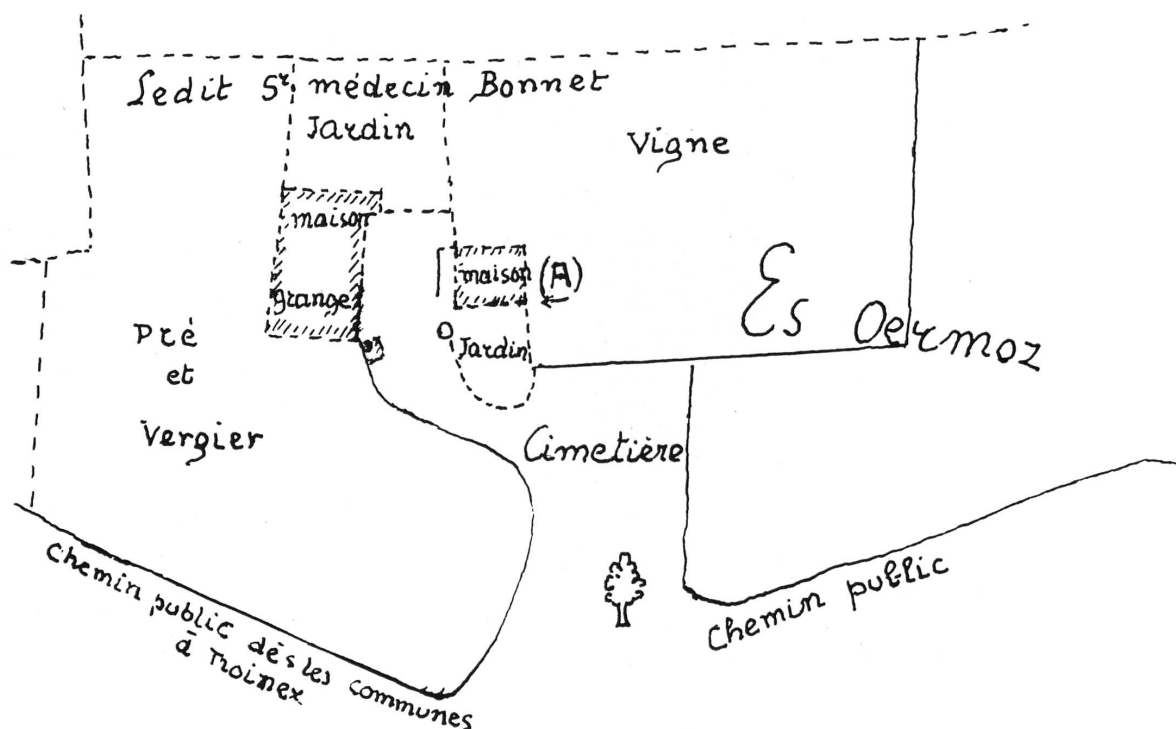 Ledit Sr médecin Bonnet
Jardin
Vigne
maison
grange
maison (A)
Jardin
Es Oermoz
Pré
et
Vergier
Cimetière
Chemin public dés les communes
à Troinex
Chemin public